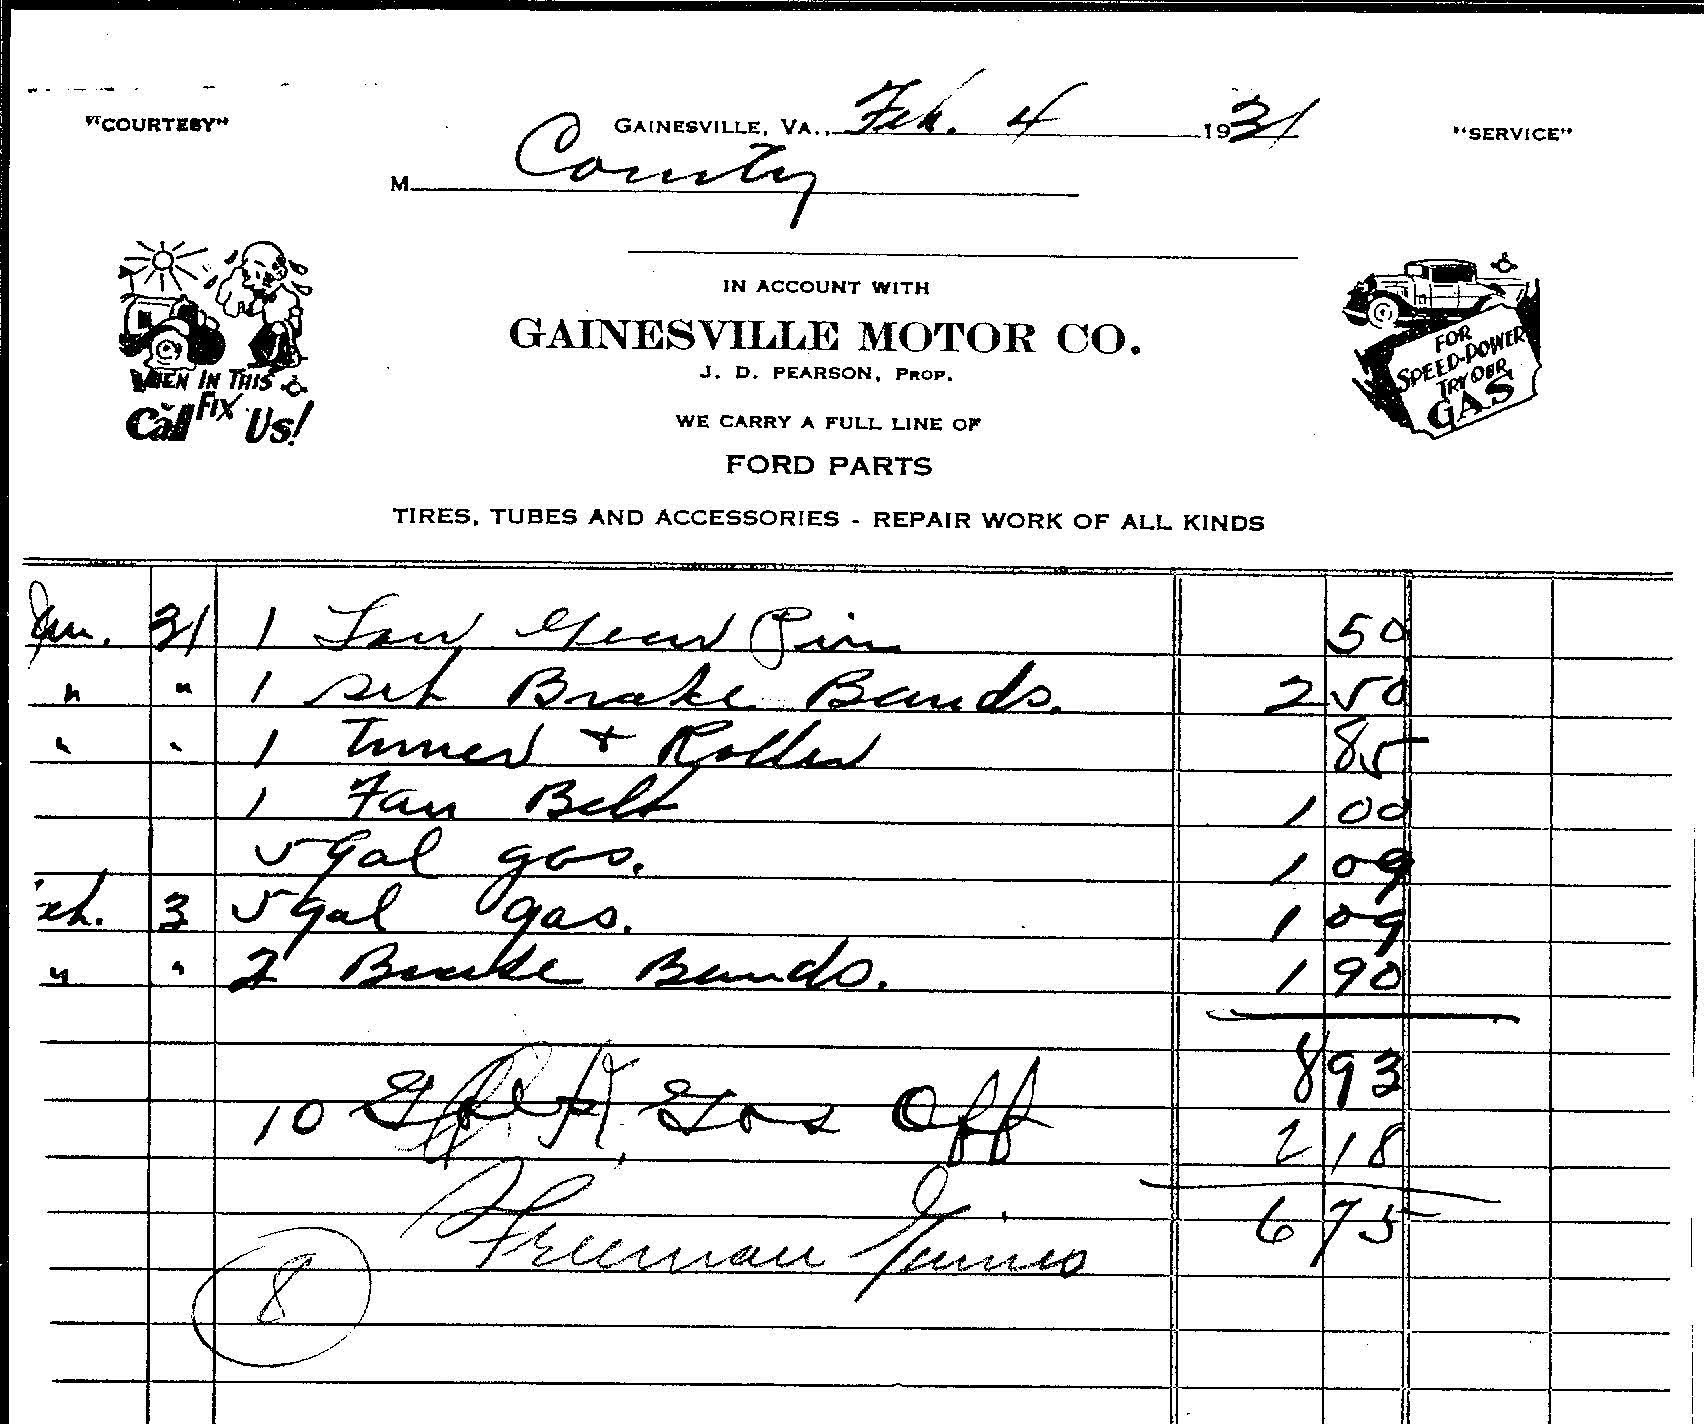 "COURTESY"
GAINESVILLE, VA., Feb. 4 1931
"SERVICE"
M County
IN ACCOUNT WITH
GAINESVILLE MOTOR CO.
J. D. PEARSON, PROP.
WE CARRY A FULL LINE OF
FORD PARTS
TIRES, TUBES AND ACCESSORIES - REPAIR WORK OF ALL KINDS
WHEN IN THIS
FIX
Call Us!
FOR
SPEED-POWER
TRY OUR
GAS
Jan. 31 1 Low Gear Pin 50
" " 1 set Brake Bands. 2 50
" " 1 Timer + Roller 85
1 Fan Belt 1 00
5 gal gas. 1 09
Feb. 3 5 gal gas. 1 09
" " 2 Brake Bands. 1 90
8 93
10 Gas Off 2 18
6 75
Freeman Gaines
8